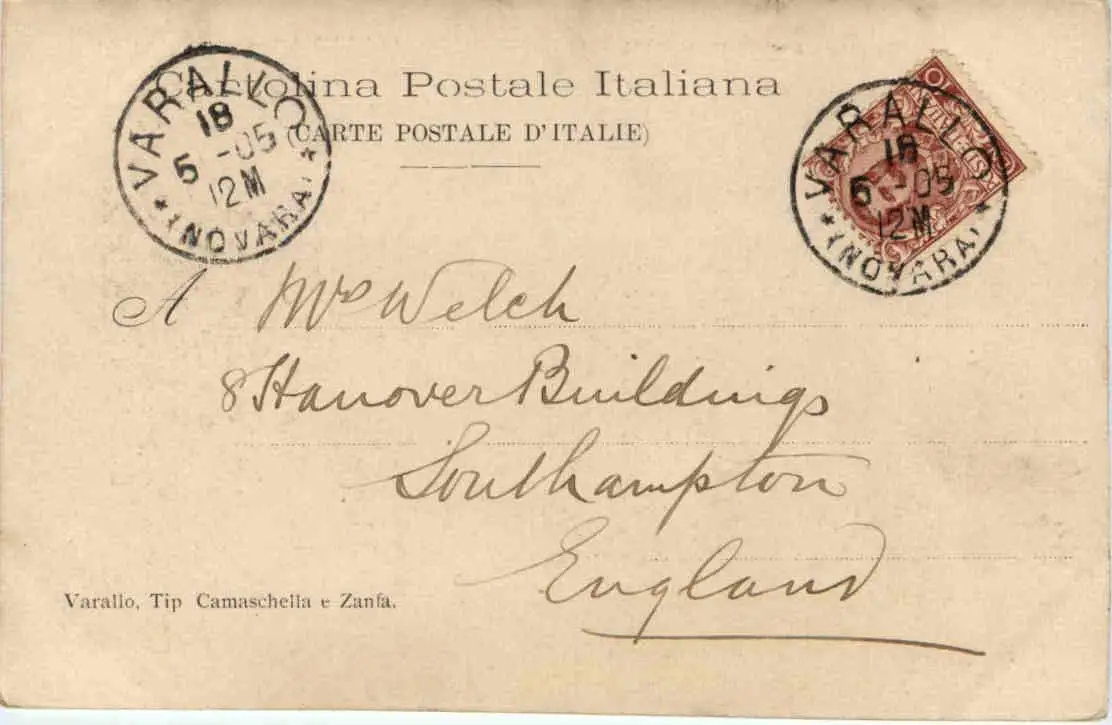 Cartolina Postale Italiana
(CARTE POSTALE D'ITALIE)
VARALLO
18
5 -05
12M
(NOVARA)
VARALLO
18
5 -05
12M
(NOVARA)
A Mrs Welch
8 Hanover Buildings
Southampton
England
Varallo, Tip Camaschella e Zanfa.